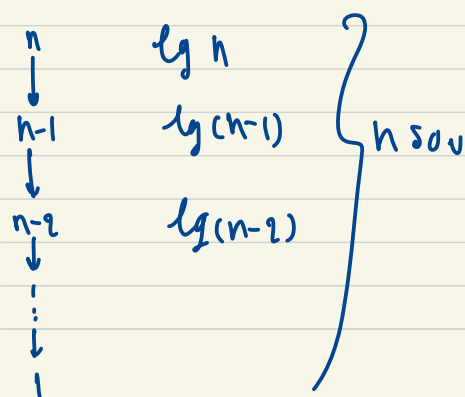 n lg n
n-1 lg (n-1)
n-2 lg (n-2)
1
n sov